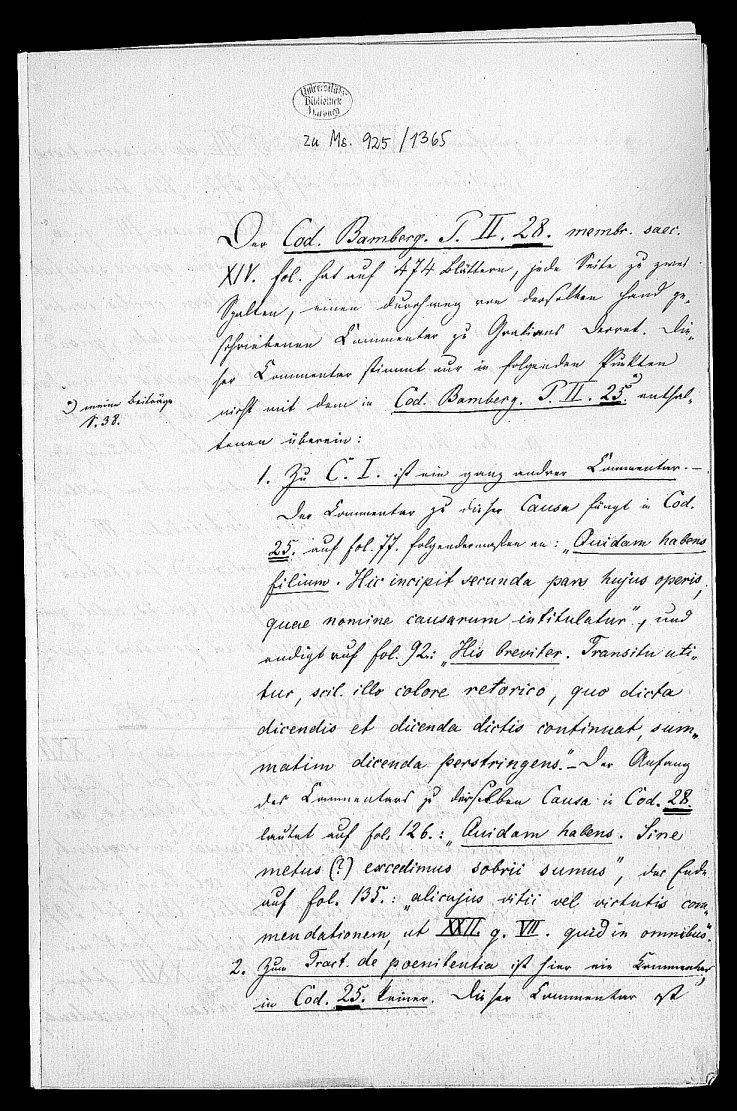 Universitäts
Bibliothek
Marburg
zu Ms. 925/1365
Der Cod. Bamberg. P. II. 28. membr. saec.
XIV. fol. hat auf 474 Blättern, jede Seite zu zwei
Spalten, einen durchweg von derselben Hand ge-
schriebenen Commentar zu Gratians Decret. Die-
ser Commentar stimmt nur in folgenden Punkten
nicht mit dem in Cod. Bamberg. P. II. 25.*) enthal-
tenen überein:
*) meine Beiträge
S. 38.
1. Zu C. I. ist ein ganz andrer Commentar. –
Der Commentar zu dieser Causa fängt in Cod.
25. auf fol. 77. folgendermaßen an: „Quidam habens
filium. Hic incipit secunda pars hujus operis,
quae nomine causarum intitulatur", und
endigt auf fol. 92.: „His breviter. Transitu uti-
tur, scil. illo colore retorico, quo dicta
dicendis et dicenda dictis continuat, sum-
matim dicenda perstringens." – Der Anfang
des Commentars zu derselben Causa in Cod. 28.
lautet auf fol. 126.: „Quidam habens. Sine
metus (?) excedimus sobrii sumus", das Ende
auf fol. 135.: „alicujus vitii vel virtutis com-
mendationem, ut XXII. q. VII. quid in omnibus".
2. Zum Tract. de poenitentia ist hier ein Commentar,
in Cod. 25. keiner. Dieser Commentar ist